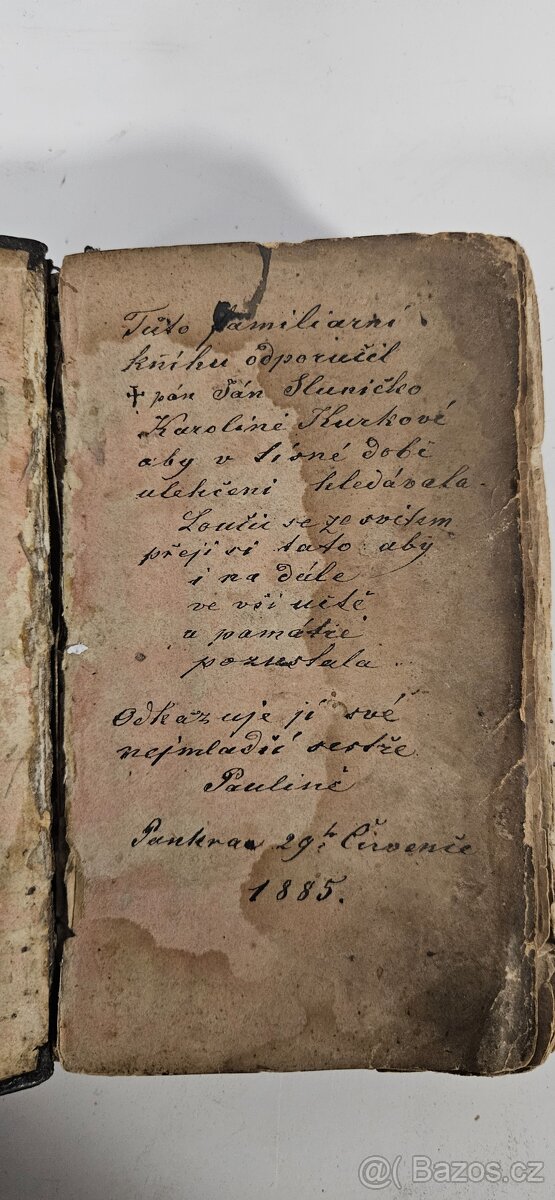 Tůto familiarní
knihu odporučil
✝ pán Ján Sluničko
Karolině Kurkové
aby v tísné době
ulehčeni hledávala.
Loučic se ze svitem
přeji si tato aby
i na dále
ve vši uctě
a památce
pozustala
Odkazuje ji své
nejmladší sestře
Paulině
Pankrac 29ho Července
1885.
@ Bazos.cz